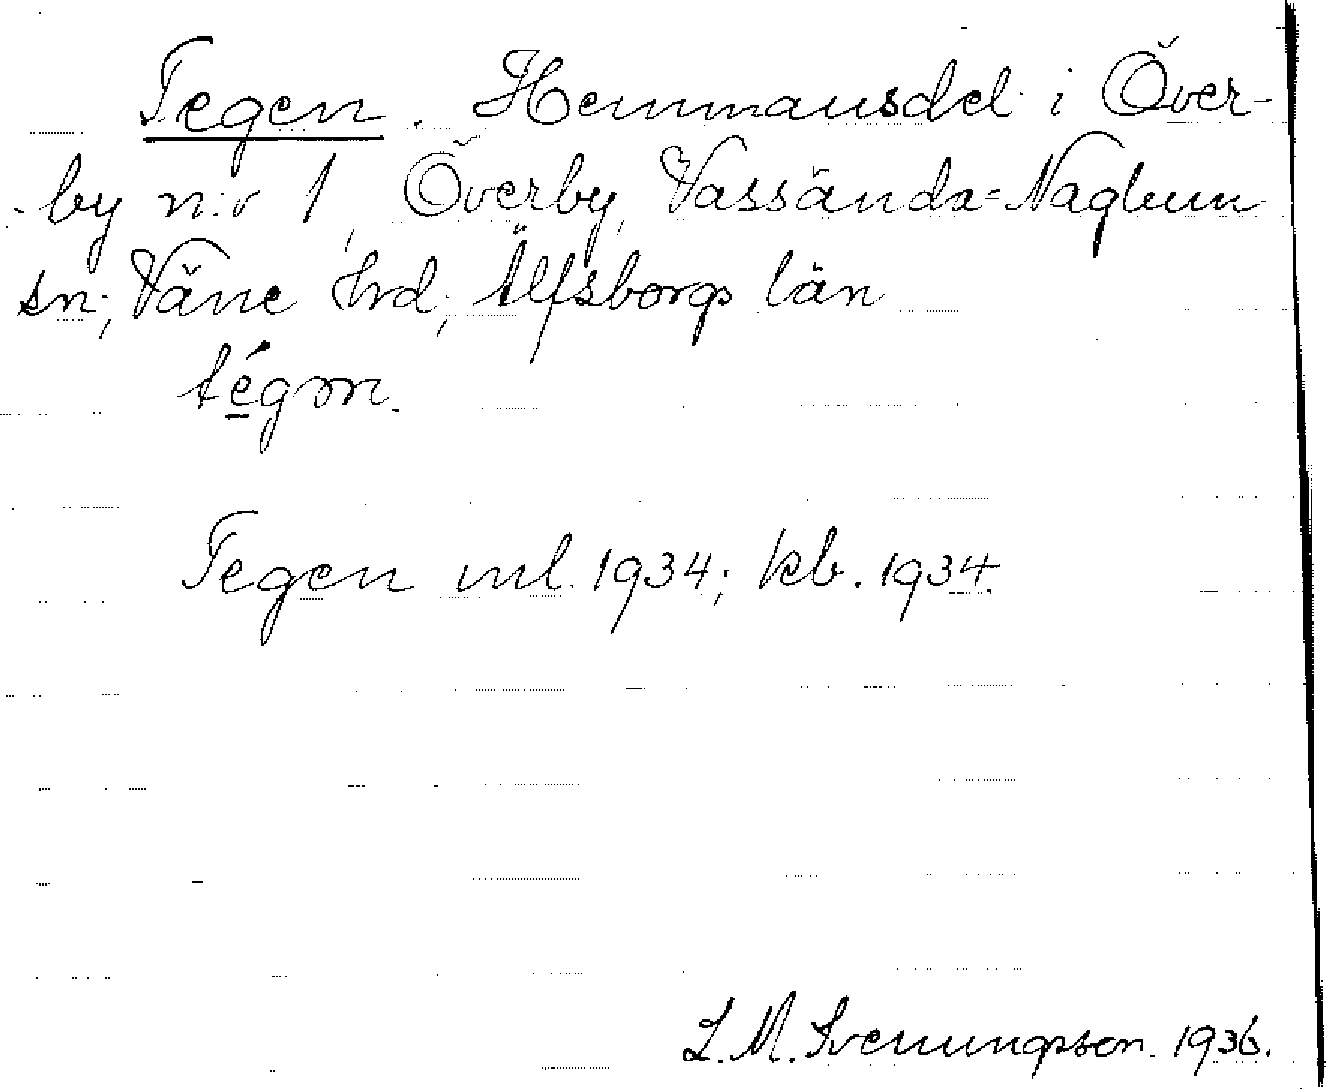 Tegen. Hemmansdel i Över-
by n:r 1, Överby, Vassända-Naglum
sn; Väne hrd; Älfsborgs län
tégɷn.
Tegen ml. 1934; kb. 1934.
L. M. Svenungsson. 1936.